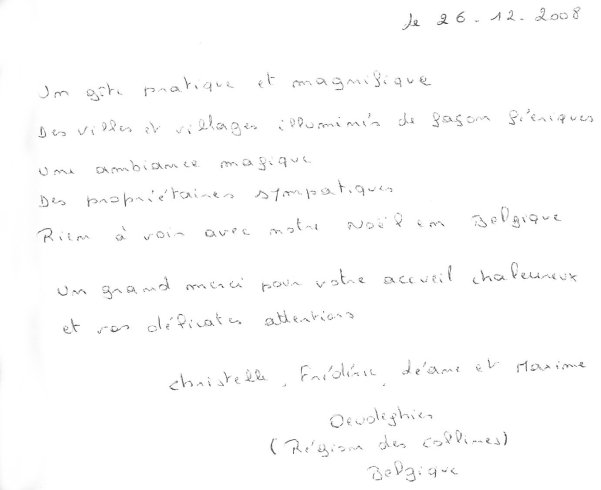 le 26.12.2008
Un gîte pratique et magnifique
Des villes et villages illuminés de façon féeriques
Une ambiance magique
Des propriétaires sympatiques
Rien à voir avec notre Noël en Belgique
Un grand merci pour votre accueil chaleureux
et vos délicates attentions
Christelle, Frédéric, Léane et Maxime
(Région des Collines)
Belgique